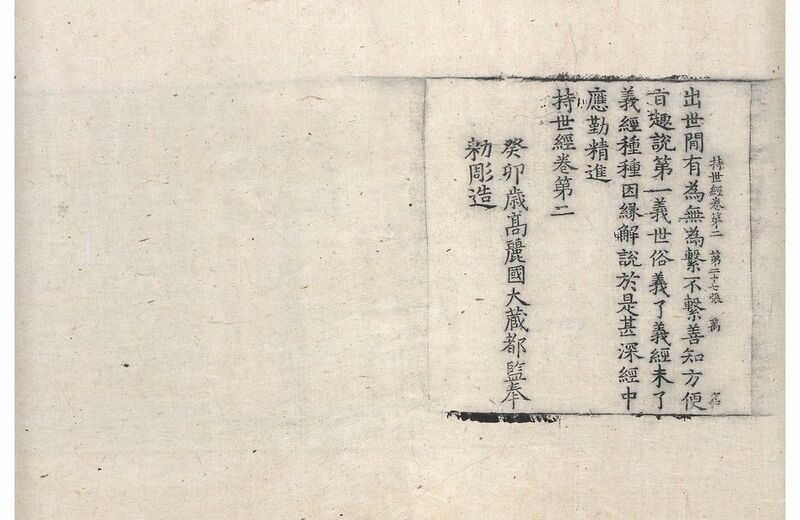 持世經卷第二 第二十七張 萬
出世閒有為無為繫不繫善知方便
㫖趣說第一義世俗義了義經未了
義經種種因緣解說於是甚深經中
應勤精進
持世經卷第二
癸卯歲高麗國大藏都監奉
勑彫造